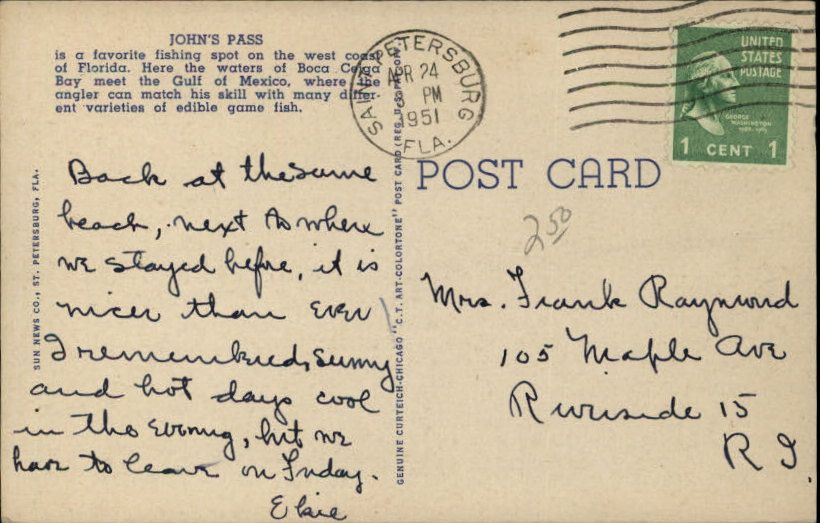 JOHN'S PASS
is a favorite fishing spot on the west coast
of Florida. Here the waters of Boca Ceiga
Bay meet the Gulf of Mexico, where the
angler can match his skill with many differ-
ent varieties of edible game fish.
SAINT PETERSBURG
APR 24
PM
1951
FLA.
UNITED
STATES
POSTAGE
GEORGE
WASHINGTON
1 CENT 1
POST CARD
2.50
Back at the same
beach, next to where
we stayed before, it is
nicer than ever
I remembered, sunny
and hot days cool
in the evening, but we
have to leave on Friday.
Elsie
Mrs. Frank Raymond
105 Maple Ave
Riverside 15
R I
SUN NEWS CO., ST. PETERSBURG, FLA.
GENUINE CURTEICH-CHICAGO "C.T. ART-COLORTONE" POST CARD (REG. U.S. PAT. OFF.)